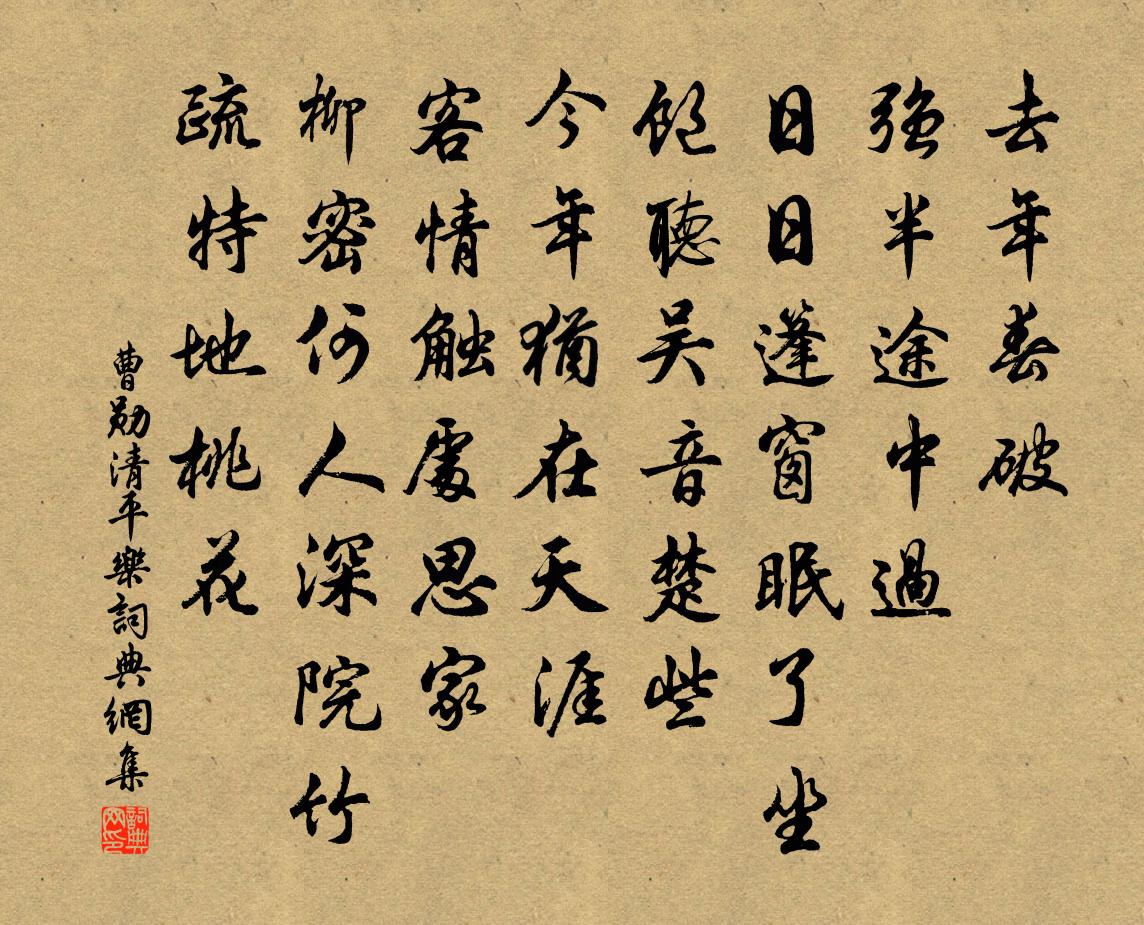 去年春破
強半途中過
日日蓬窗眠了坐
飽聽吳音楚些
今年猶在天涯
客情觸處思家
柳密何人深院竹
疏特地桃花
曹勛清平樂詞典網集
詞典网印